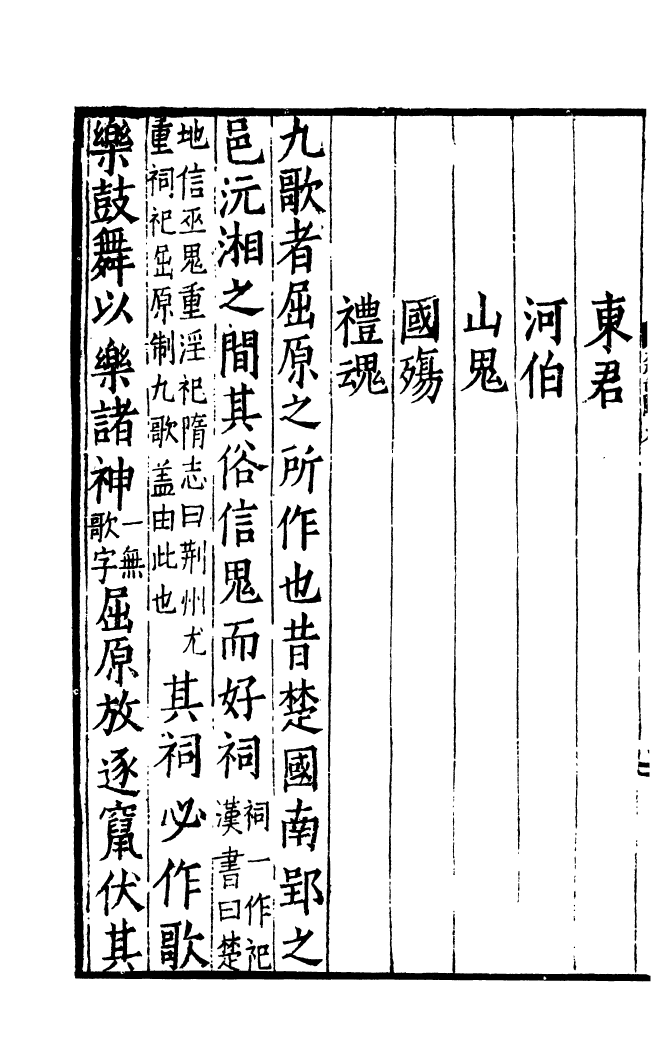 東君
河伯
山鬼
國殤
禮魂
九歌者屈原之所作也昔楚國南郢之
邑沅湘之間其俗信鬼而好祠祠一作祀漢書曰楚
地信巫鬼重淫祀隋志曰荆州尤重祠祀屈原制九歌盖由此也其祠必作歌
樂鼓舞以樂諸神一無歌字屈原放逐竄伏其